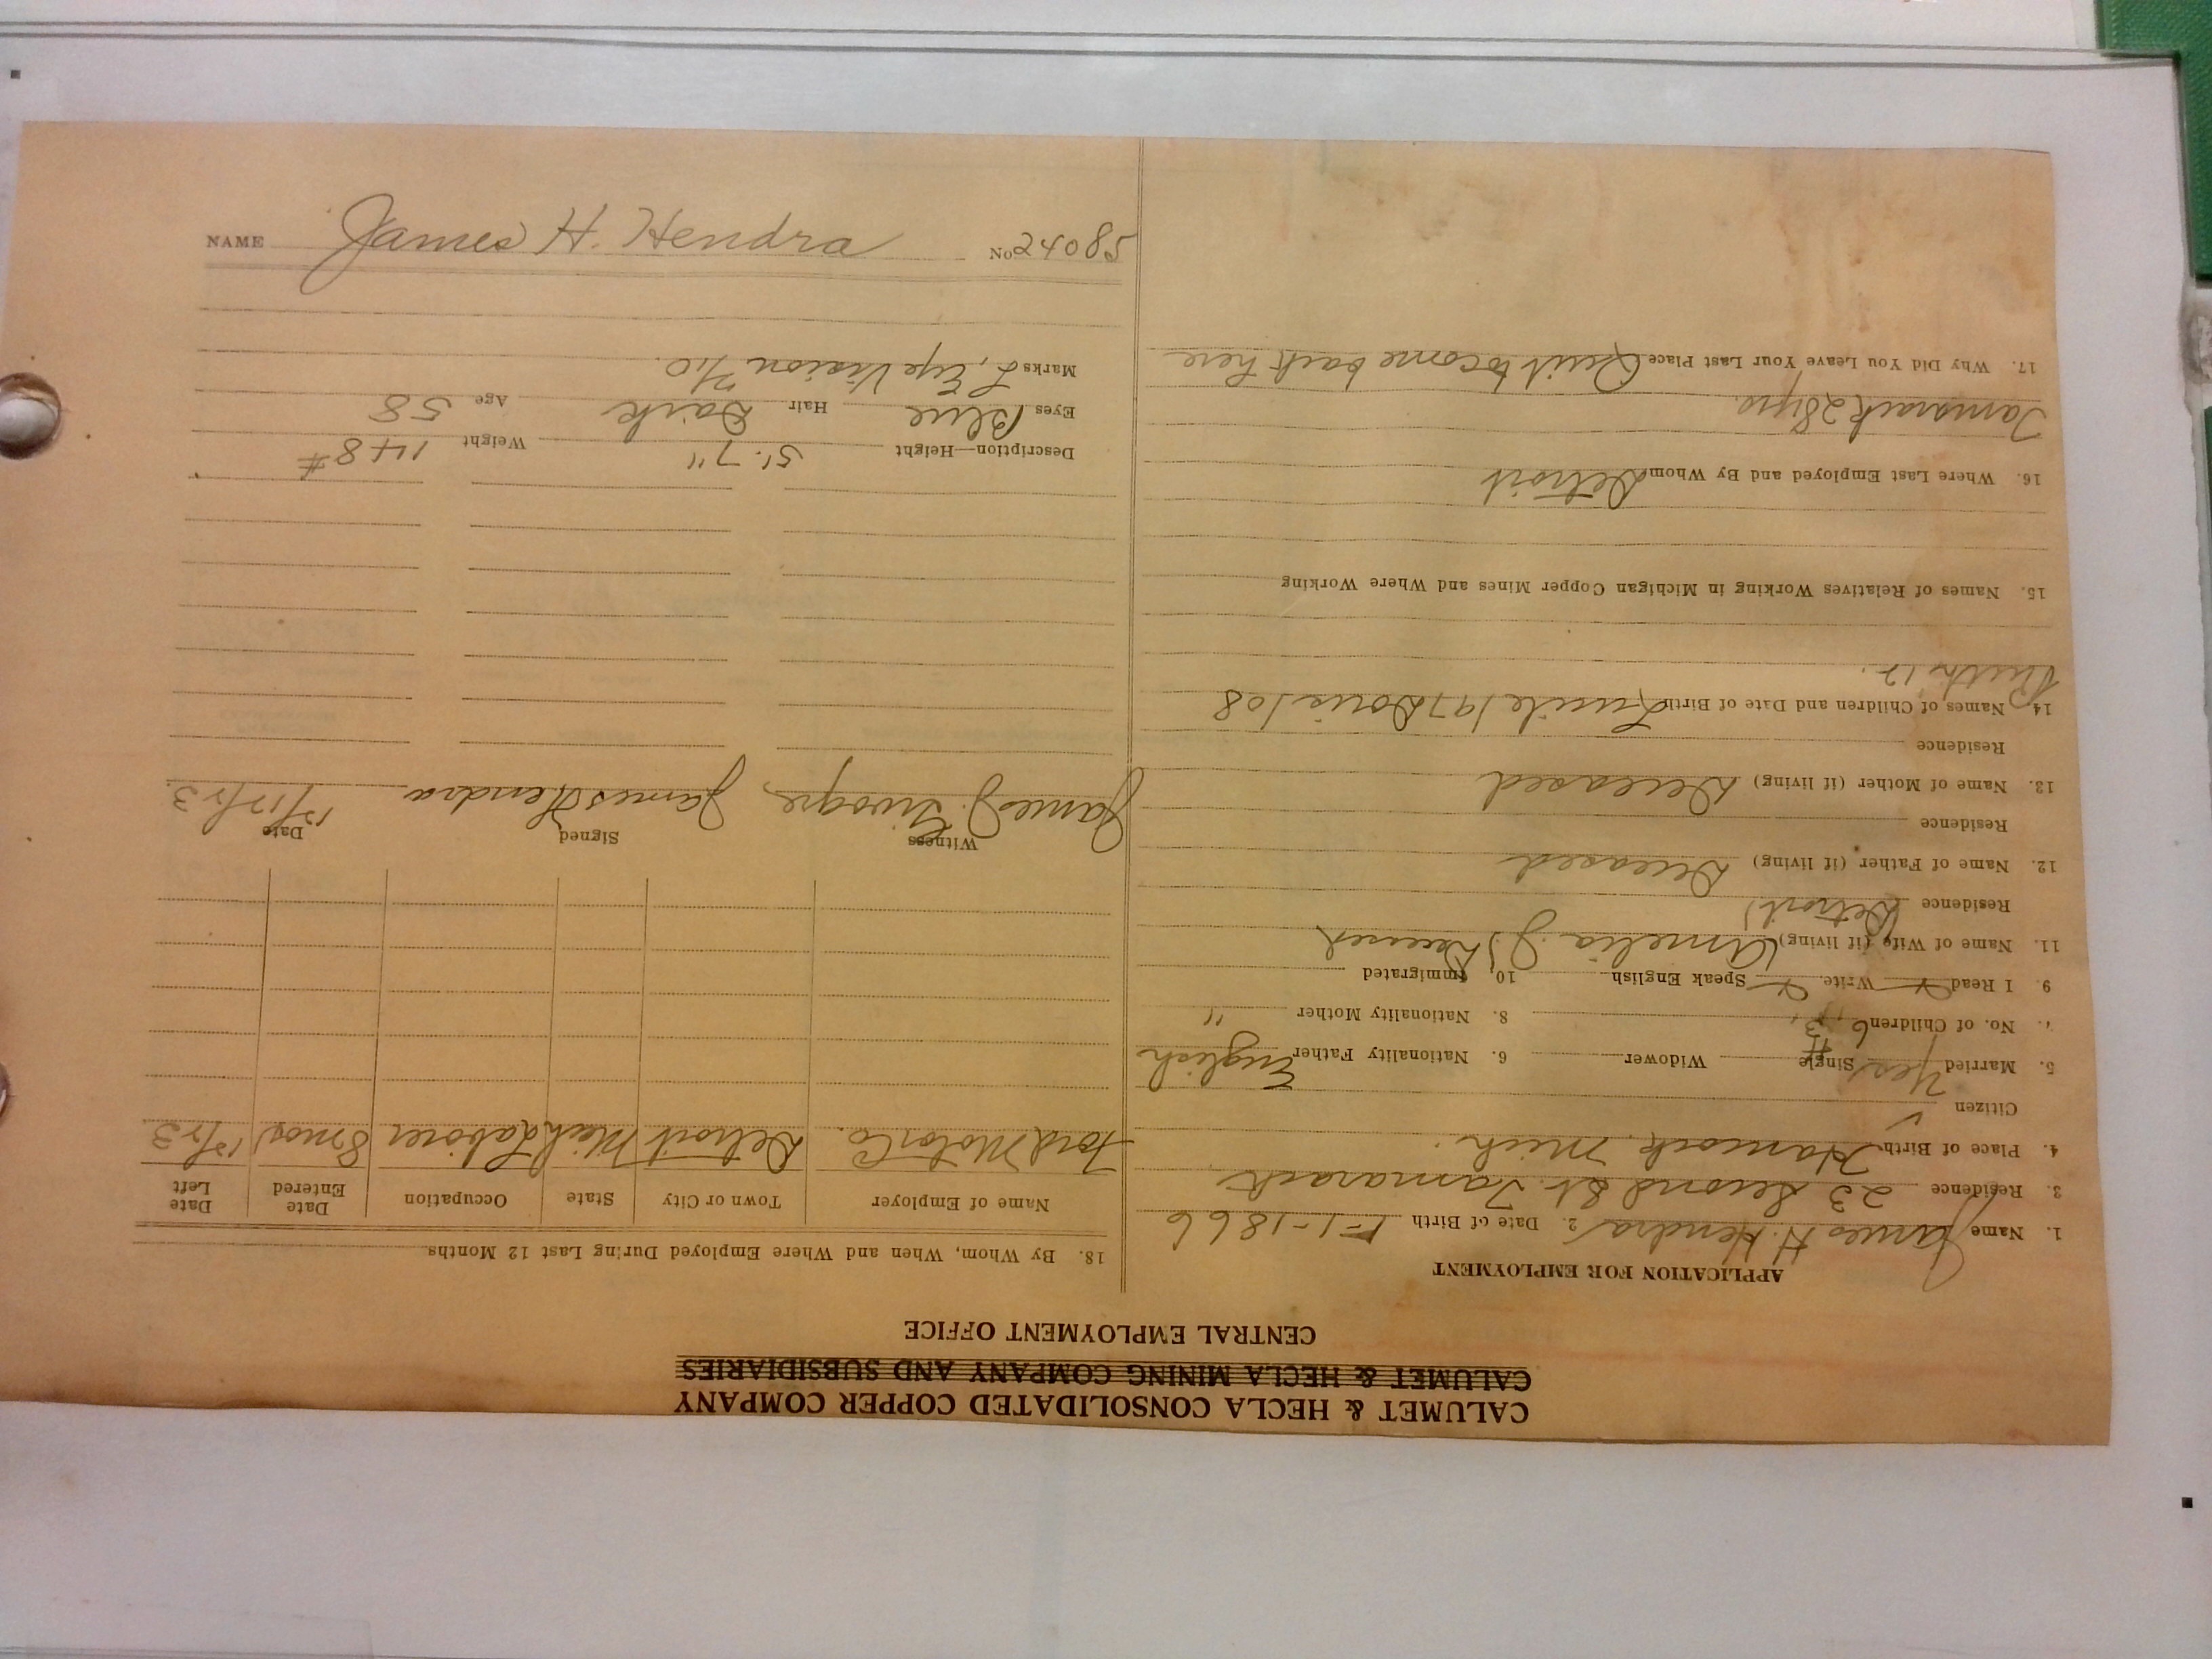 CALUMET & HECLA CONSOLIDATED COPPER COMPANY
CALUMET & HECLA MINING COMPANY AND SUBSIDIARIES
CENTRAL EMPLOYMENT OFFICE
APPLICATION FOR EMPLOYMENT
1. Name James H. Hendra 2. Date of Birth 1-1-1866
3. Residence 23 Second St. Tamarack
4. Place of Birth Hancock, Mich.
Citizen
5. Married Yes Single Widower 6. Nationality Father English
7. No. of Children 6 8. Nationality Mother "
9. I Read Write Speak English 10. Immigrated
11. Name of Wife (if living) (Amelia J.) Deceased
Residence Detroit)
12. Name of Father (if living) Deceased
Residence
13. Name of Mother (if living) Deceased
Residence
14. Names of Children and Date of Birth Lucile Doris 108
Ruth 12.
15. Names of Relatives Working in Michigan Copper Mines and Where Working
16. Where Last Employed and By Whom Detroit
Tamarack 28 yrs.
17. Why Did You Leave Your Last Place Quit to come back here
18. By Whom, When and Where Employed During Last 12 Months
Name of Employer Town or City State Occupation Date Entered Date Left
Ford Motor Co. Detroit Mich Laborer 8 mos 12/23
Witness Signed Date
James J. James H Hendra 12/17/23.
Description—Height 5'. 7" Weight 148#
Eyes Blue Hair Dark Age 58
Marks L, Eye Vision 7/10.
NAME James H. Hendra No 24085